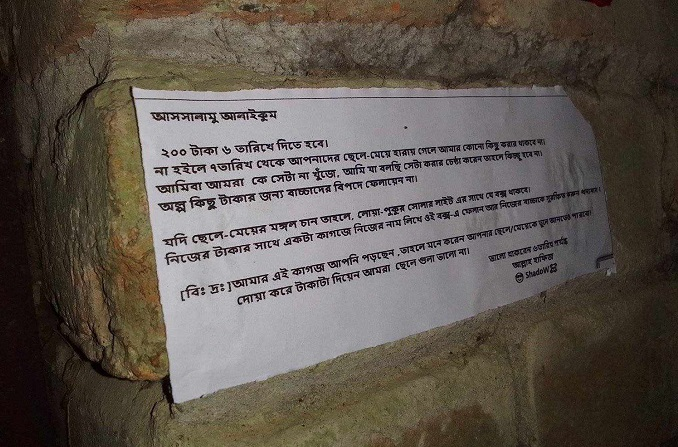 আসসালামু আলাইকুম
২০০ টাকা ৬ তারিখে দিতে হবে।
না হইলে ৭তারিখ থেকে আপনাদের ছেলে-মেয়ে হারায় গেলে আমার কোনো কিছু করার থাকবে না।
আমিবা আমরা কে সেটা না খুঁজে, আমি যা বলছি সেটা করার চেষ্ঠা করেন তাহলে কিচ্ছু হবে না।
অল্প কিছু টাকার জন্য বাচ্চাদের বিপদে ফেলায়েন না।
যদি ছেলে-মেয়ের মঙ্গল চান তাহলে, লোয়া-পুকুর সোলার লাইট এর সাথে যে বক্স থাকবে।
নিজের টাকার সাথে একটা কাগজে নিজের নাম লিখে ওই বক্স-এ ফেলান আর নিজের বাচ্চাকে সুরক্ষিত করুন
[বিঃ দ্রঃ]আমার এই কাগজ আপনি পড়ছেন ,তাহলে মনে করেন আপনার ছেলে/মেয়েকে তুলে আনতেও পারবো।
দোয়া করে টাকাটা দিয়েন আমরা ছেলে গুলা ভালো না।
ভালো থাকবেন ৬তারিখ পর্যন্ত
আল্লাহ হাফিজ
ShadoW